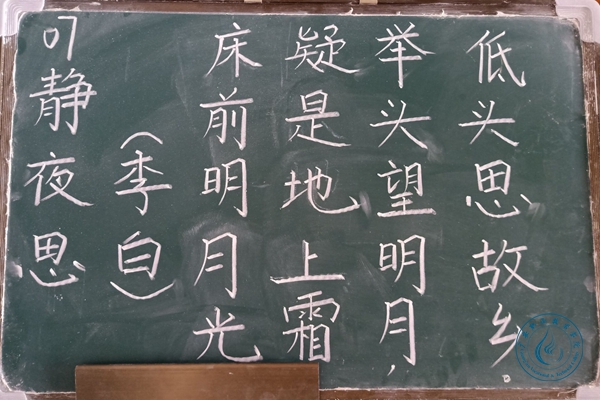 07静夜思
(季白)
床前明月光
疑是地上霜
举头望明月,
低头思故乡。